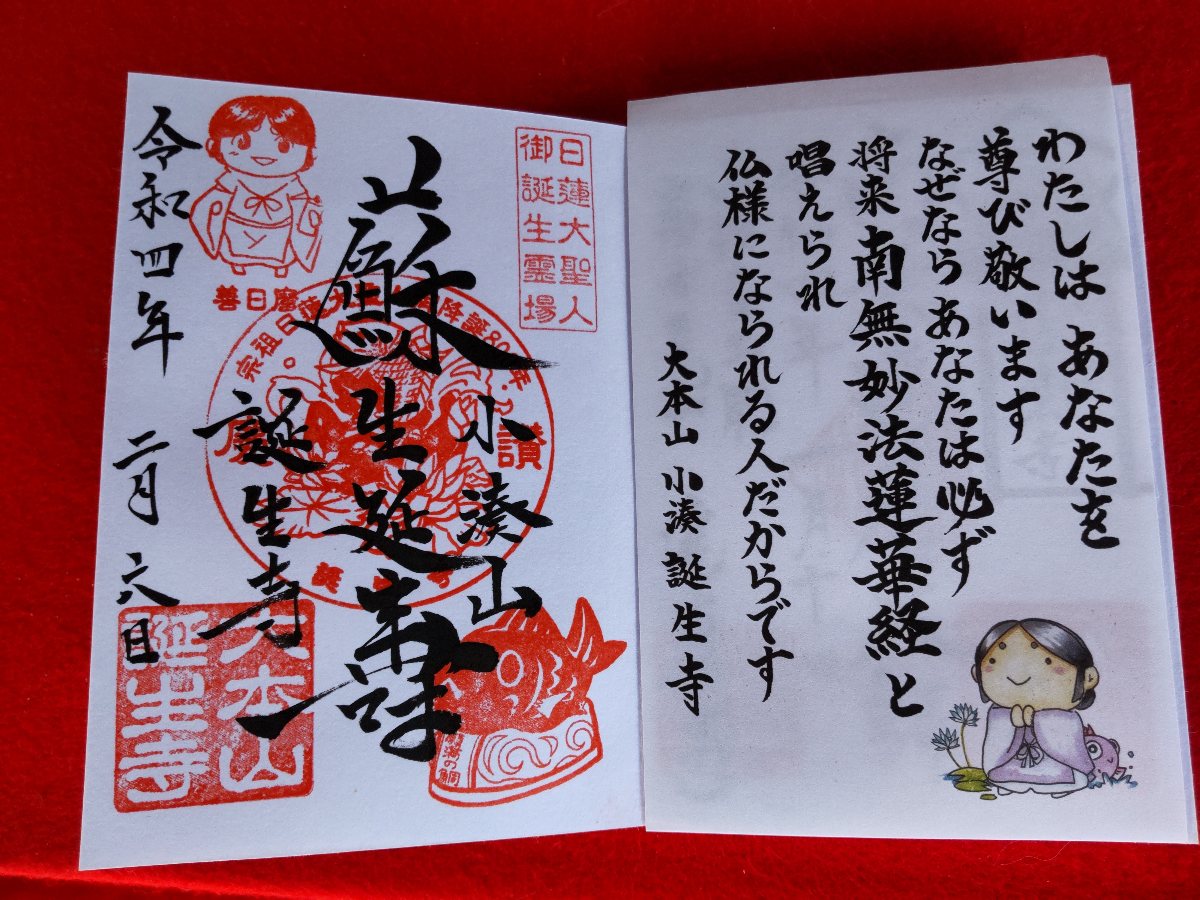 わたしは あなたを
尊び敬います
なぜなら あなたは必ず
将来 南無妙法蓮華経と
唱えられ
仏様になられる人だからです
大本山 小湊誕生寺
日蓮大聖人
御誕生霊場
小湊山
蘇生延壽
誕生寺
善日麿
宗祖日 降誕80 年
讃
大本山
誕生寺
の鯛
令和四年 二月六日